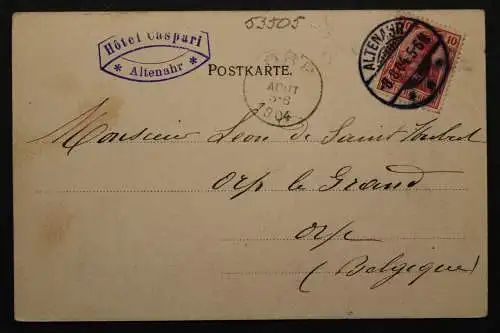 53505
Hôtel Caspari
* Altenahr *
POSTKARTE.
ORP
AOUT
1904
ALTENAHR
8.8.04.5-6N.
10
Monsieur Léon de Saint Hubert
Orp le Grand
Orp
(Belgique)